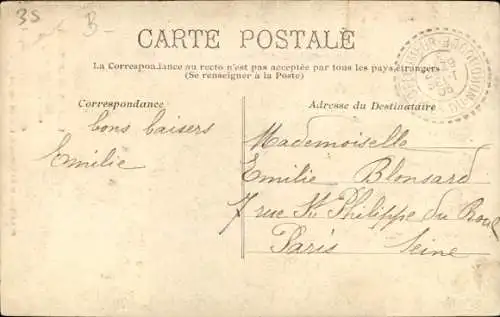 35
B-
CARTE POSTALE
La Correspondance au recto n'est pas acceptée par tous les pays étrangers
(Se renseigner à la Poste)
Correspondance
Adresse du Destinataire
bons baisers
Emilie
Mademoiselle
Emilie Blonsard
7 rue St Philippe du Roul
Paris Seine